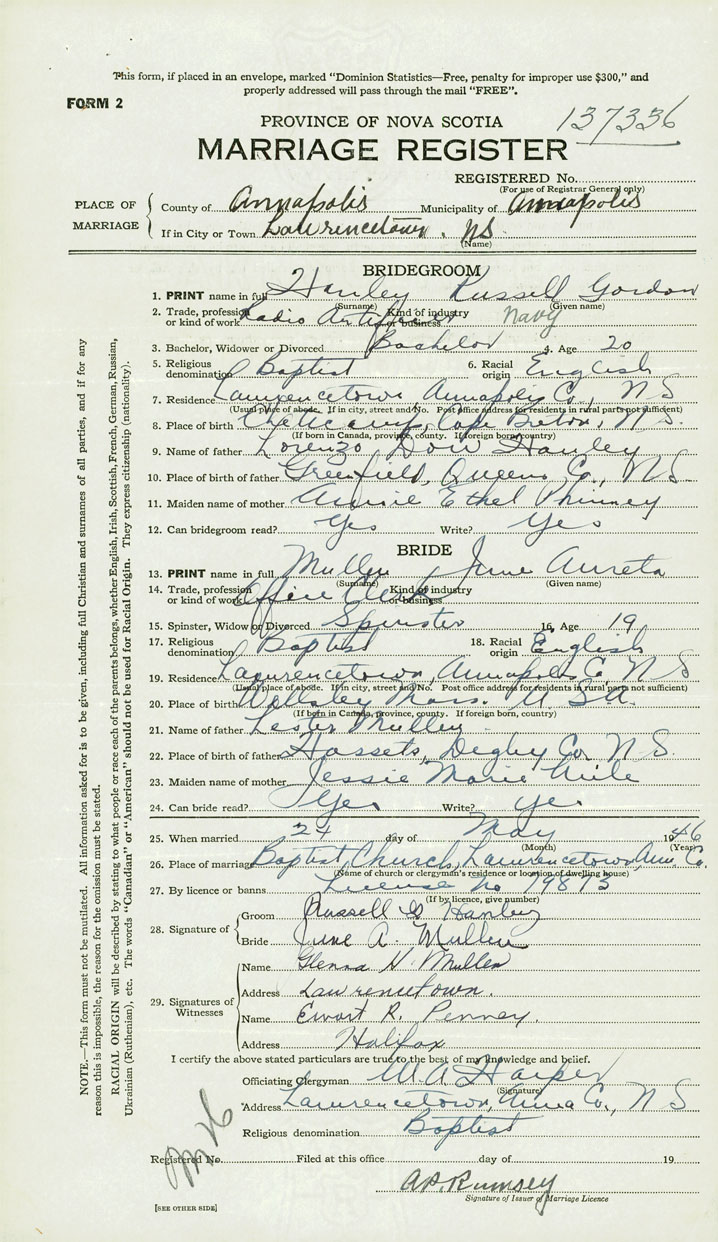 This form, if placed in an envelope, marked “Dominion Statistics—Free, penalty for improper use $300,” and
properly addressed will pass through the mail “FREE”.
FORM 2
137336
PROVINCE OF NOVA SCOTIA
MARRIAGE REGISTER
REGISTERED No.
(For use of Registrar General only)
PLACE OF MARRIAGE
County of Annapolis Municipality of Annapolis
If in City or Town Lawrencetown, NS
(Name)
BRIDEGROOM
1. PRINT name in full Hanley Russell Gordon
(Surname) (Given name)
2. Trade, profession or kind of work Radio Artificer Kind of industry or business Navy
3. Bachelor, Widower or Divorced Bachelor 4. Age 20
5. Religious denomination Baptist 6. Racial origin English
7. Residence Lawrencetown, Annapolis Co., NS
(Usual place of abode. If in city, street and No. Post office address for residents in rural parts not sufficient)
8. Place of birth Cheticamp, Cape Breton, N.S.
(If born in Canada, province, county. If foreign born, country)
9. Name of father Lorenzo Dow Hanley
10. Place of birth of father Greenfield, Queens Co., NS.
11. Maiden name of mother Annie Ethel Phinney
12. Can bridegroom read? Yes Write? Yes
BRIDE
13. PRINT name in full Mullen June Aureta
(Surname) (Given name)
14. Trade, profession or kind of work Office Clerk Kind of industry or business
15. Spinster, Widow or Divorced Spinster 16. Age 19
17. Religious denomination Baptist 18. Racial origin English
19. Residence Lawrencetown, Annapolis Co NS
(Usual place of abode. If in city, street and No. Post office address for residents in rural parts not sufficient)
20. Place of birth Wellsley Mass. U.S.A.
(If born in Canada, province, county. If foreign born, country)
21. Name of father Lester Mullen
22. Place of birth of father Hassets, Degby Co. N.S.
23. Maiden name of mother Jessie Marie
24. Can bride read? Yes Write? yes
25. When married 24 day of May 1946
(Month) (Year)
26. Place of marriage Baptist Church, Lawrencetown Ann. Co.
(Name of church or clergyman's residence or location of dwelling house)
27. By licence or banns License No 19813
(If by licence, give number)
28. Signature of
Groom Russell G Hanley
Bride June A. Mullen
29. Signatures of Witnesses
Name Glenna H. Mullen
Address Lawrencetown.
Name Ewart R. Penney.
Address Halifax
I certify the above stated particulars are true to the best of my knowledge and belief.
Officiating Clergyman W. A. Harper
(Signature)
Address Lawrencetown, Anna Co., NS
Religious denomination Baptist
Registered No. Filed at this office day of 19
Rumsey
Signature of Issuer of Marriage Licence
[SEE OTHER SIDE]
NOTE.—This form must not be mutilated. All information asked for is to be given, including full Christian and surnames of all parties, and if for any
reason this is impossible, the reason for the omission must be stated.
RACIAL ORIGIN will be described by stating to what people or race each of the parents belongs, whether English, Irish, Scottish, French, German, Russian,
Ukrainian (Ruthenian), etc. The words “Canadian” or “American” should not be used for Racial Origin. They express citizenship (nationality).